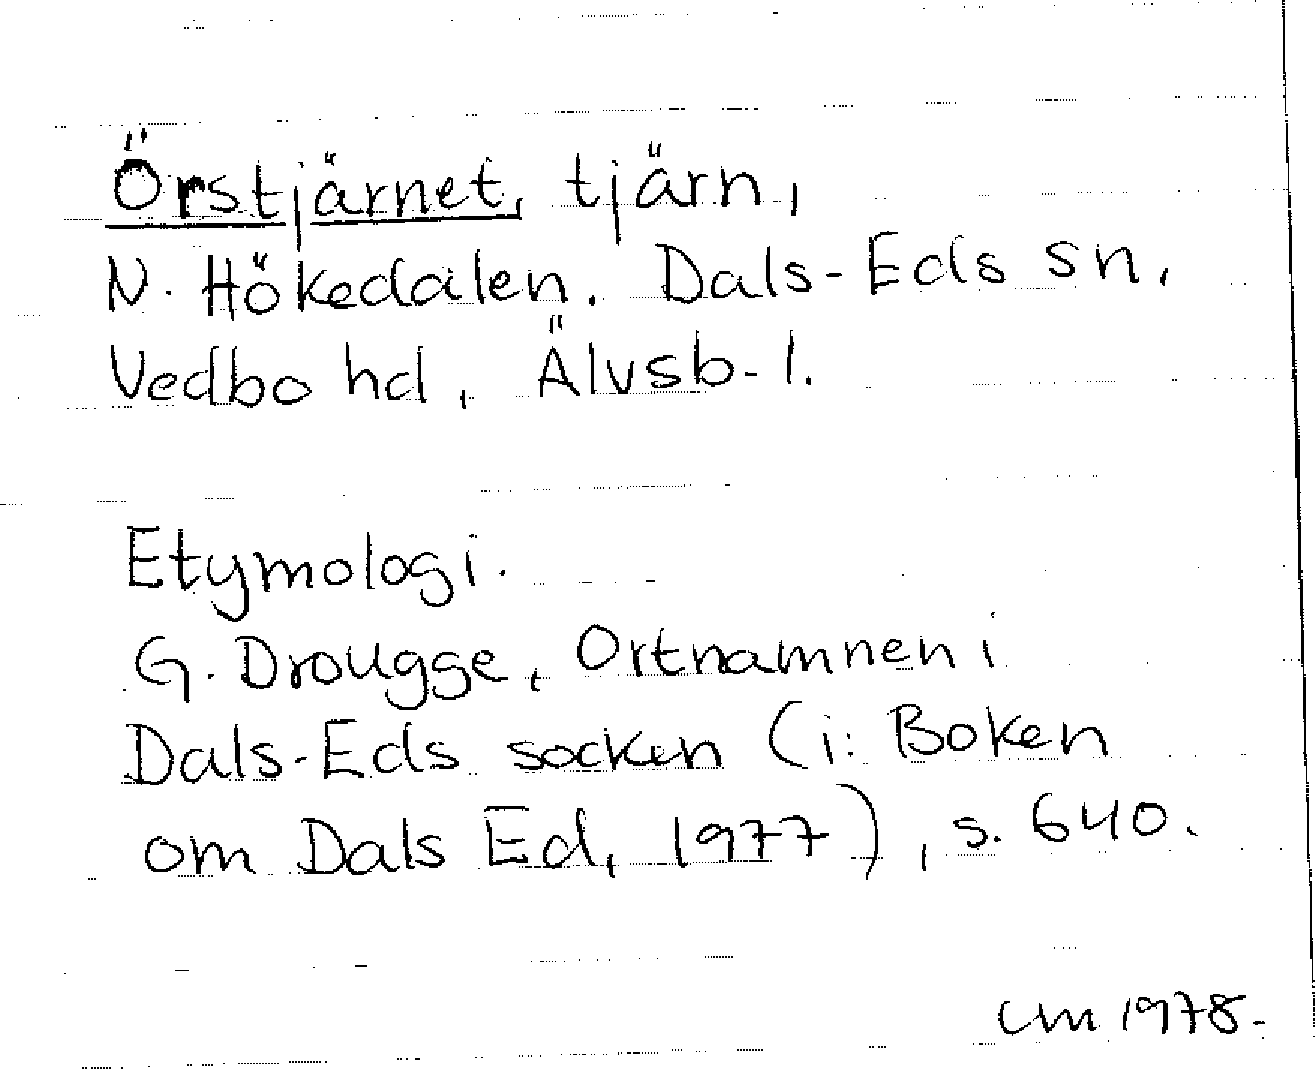 Örstjärnet, tjärn,
N. Hökedalen. Dals-Eds sn,
Vedbo hd, Älvsb. l.
Etymologi.
G. Drougge, Ortnamnen i
Dals-Eds socken (i: Boken
om Dals Ed, 1977), s. 640.
1978.